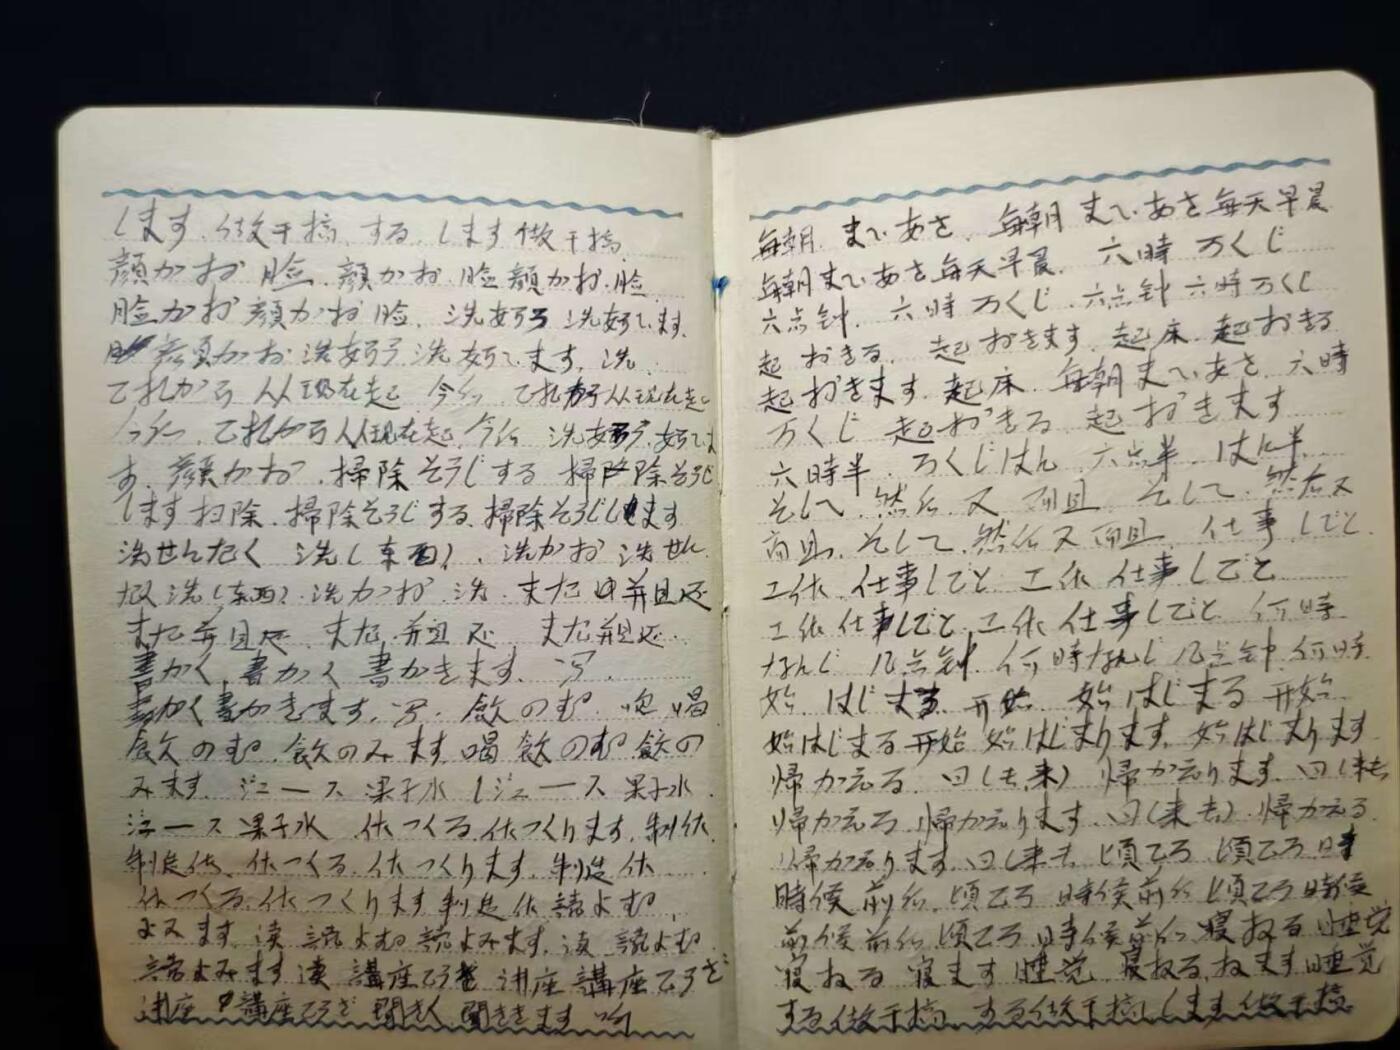 します.做干搞.する.します做干搞.
顔かお 脸.顔かお.脸顔かお.脸.
脸かお顔かお脸.洗あらう洗あらいます.
顔かお洗あらう洗あらいます.洗.
これから从现在起 今后 これから从现在起
今后.これから从现在起.今后 洗あらう.あらいま
す.顔かお.掃除そうじする掃除そうじ
します扫除.掃除そうじする.掃除そうじします
洗せんたく洗(东西).洗かお洗せん
たく洗(东西).洗かお.洗.また 并且还
また并且还 また.并且还 また并且还.
書かく.書かく書かきます.写.
書かく書かきます.写.飲のむ 吃喝
飲のむ.飲のみます喝飲のむ飲の
みます.ジュース果子水(ジュース果子水.
ジュース果子水 作つくる.作つくります.制作
制造作.作つくる.作つくります.制造作
作つくる.作つくります制造作読よむ.
よみます.读読よむ読よみます.读読よむ
読よみます读講座こうざ讲座講座こうざ
讲座講座こうざ聞きく聞ききます.听
毎朝.まいあさ.毎朝まいあさ每天早晨
毎朝まいあさ每天早晨.六時ろくじ
六点钟.六時ろくじ.六点钟六時ろくじ
起おきる.起おきます.起床.起おきる
起おきます.起床.毎朝まいあさ.六時
ろくじ 起おきる 起おきます
六時半.ろくじはん.六点半.はん半.
そして.然后.又 而且.そして.然后又
而且.そして.然后又而且.仕事しごと.
工作.仕事しごと工作仕事しごと
工作仕事しごと.工作仕事しごと何時
なんじ几点钟.何時なんじ几点钟.何時.
始 はじまる.开始.始はじまる开始
始はじまる开始始はじまります.始はじまります
帰かえる.回(去.来)帰かえります.回(来去
帰かえる.帰かえります.回(来去).帰かえる
帰かえります.回(来去 頃ころ頃ころ時
時候前后.頃ころ時候前后頃ころ時候
前候前后.頃ころ.時候前后.寝ねる睡觉
寝ねる寝ます睡觉.寝ねる.ねます睡觉
する做干搞.する做干搞します做干搞.